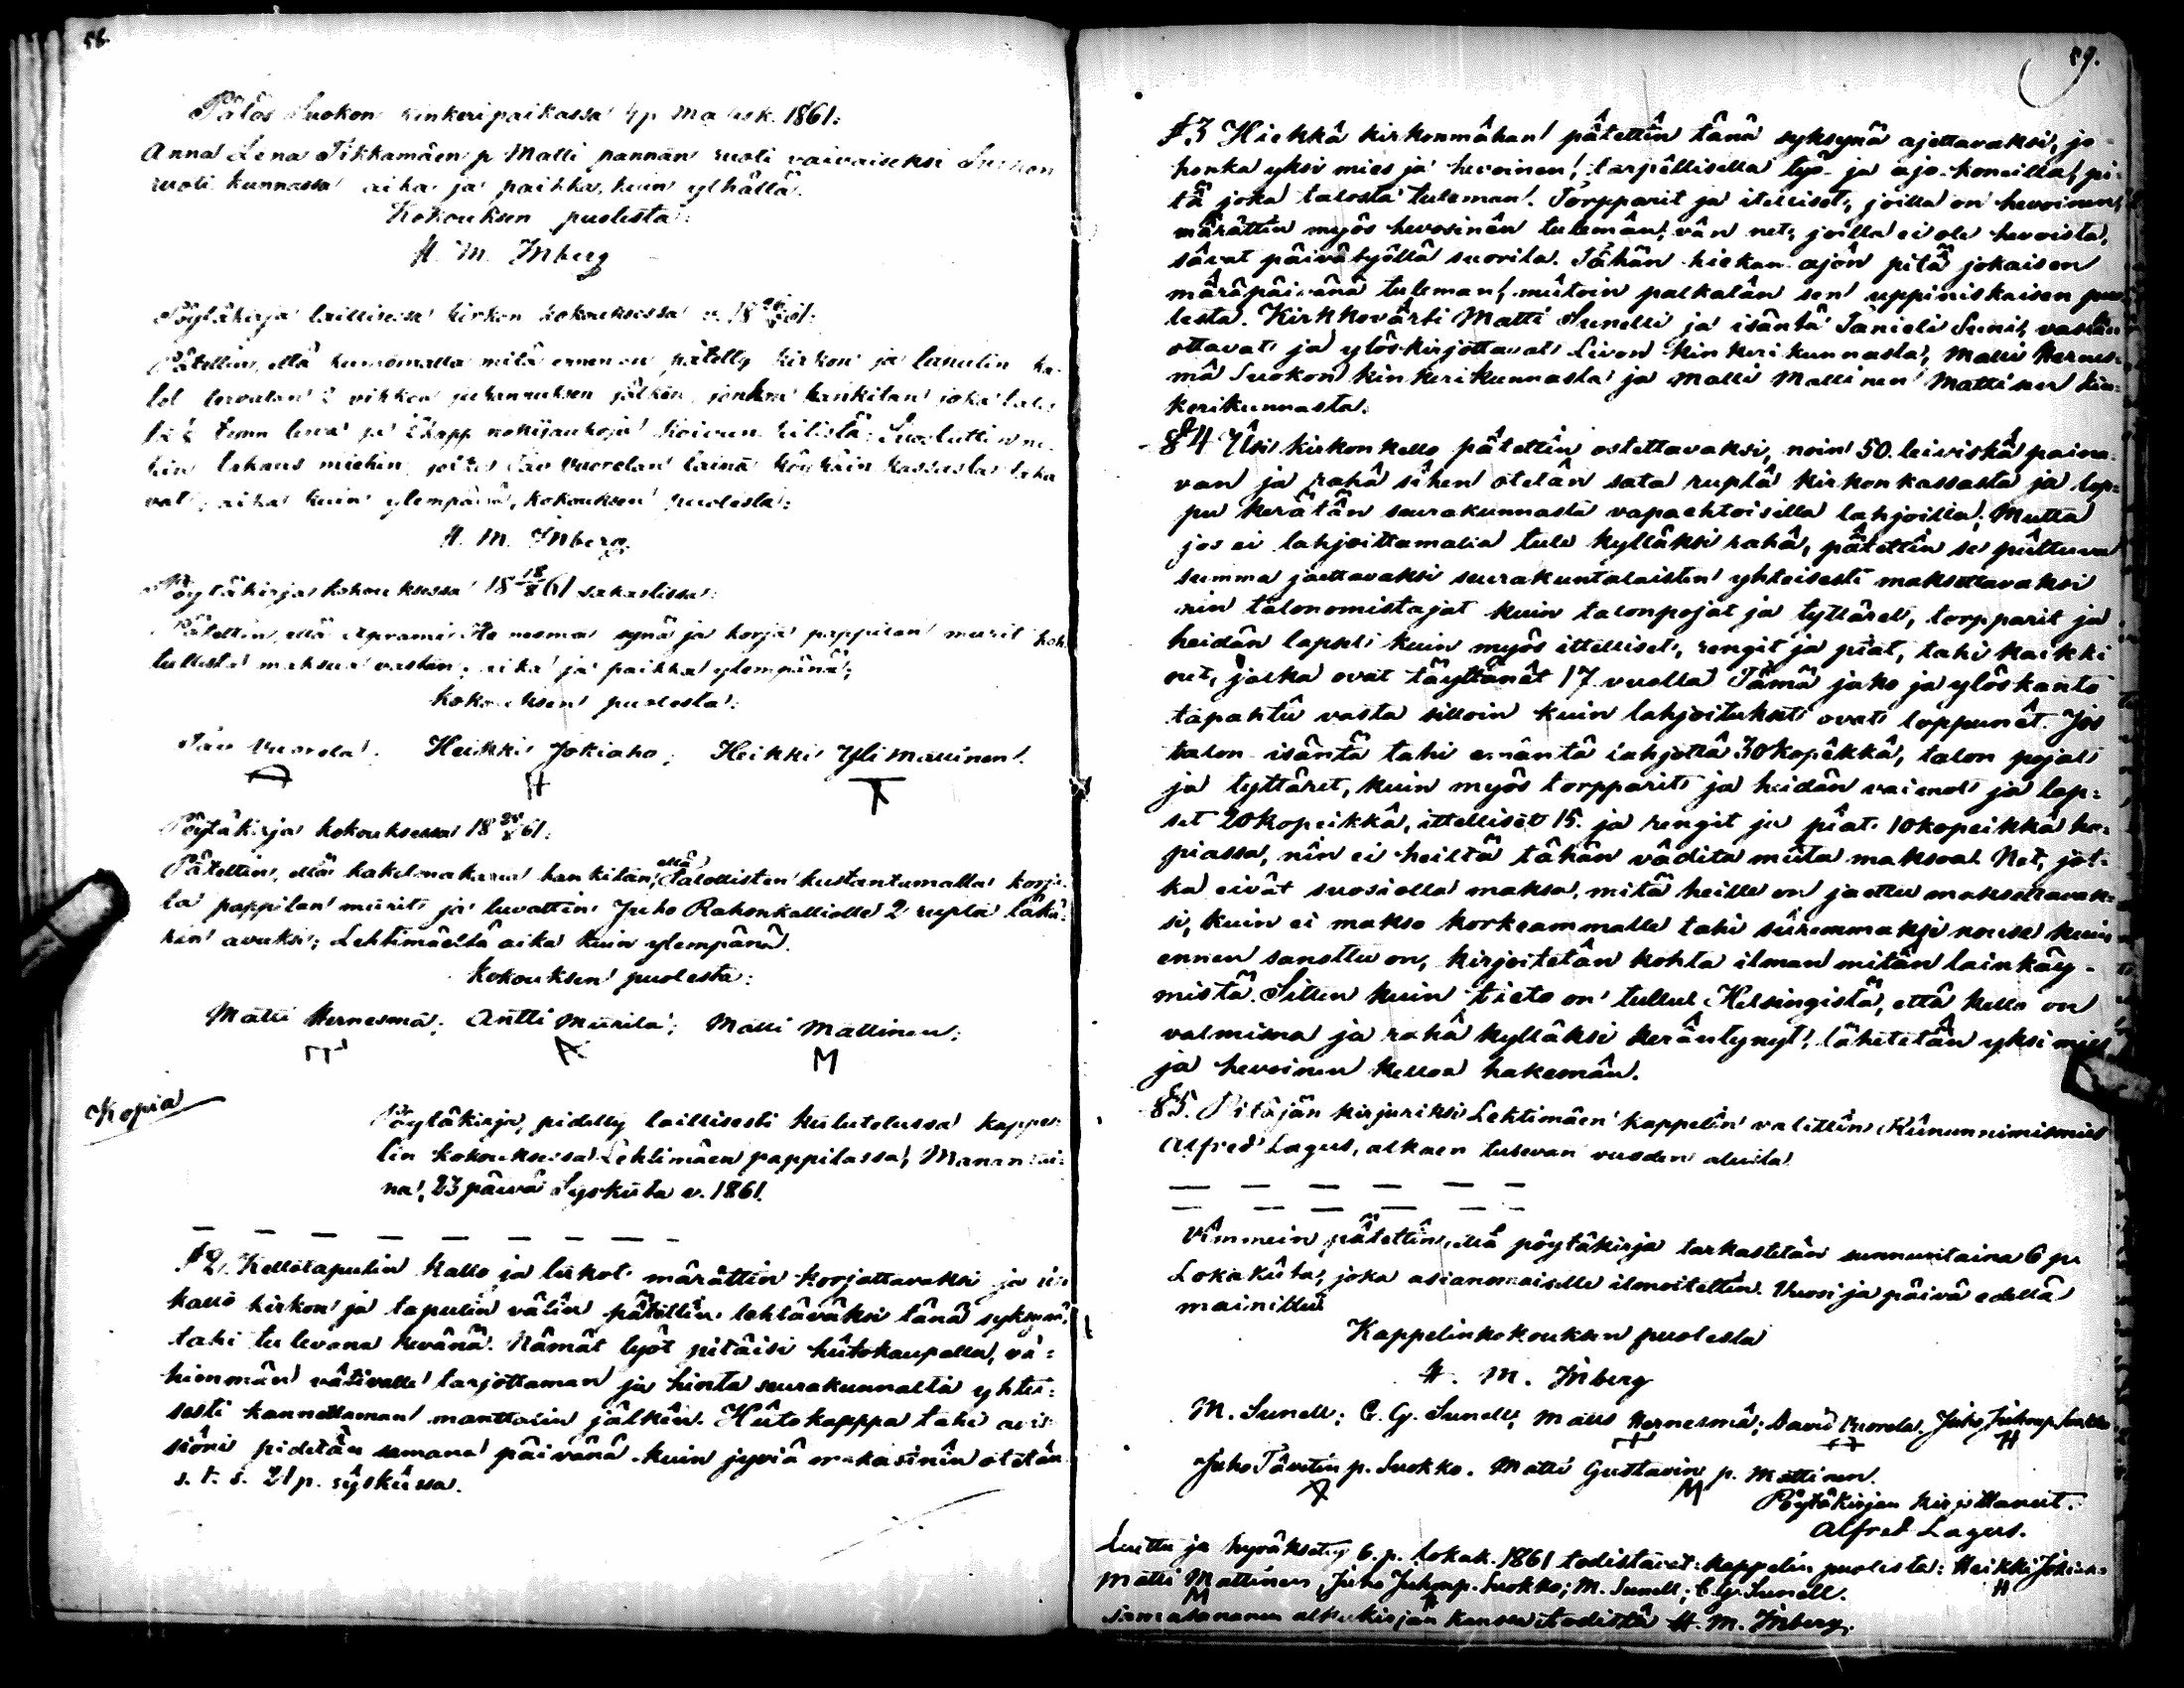 58.
Pätös Suokon kinkeripaikassa 4 p. Malisk. 1861:
Anna Lena Tikkamäen p Matti pannan ruoti vaivaiseksi Suokon
ruoti kunnassa aika ja paikka, kuin ylhällä.
Kokouksen puolesta:
H. M. Inberg
Pöytäkirja laillisessa kirkon kokouksessa v. 18 61:
Pätettin, että huomamatta mitä ennen on pätetty kirkon ja tapulin ka-
tot tervatan 2 vikkoa juhannuksen jälkin, johon hankitan joka talos
ta ½ tynn terva ja kapp nokijauhoja koivun hilistä: Suostuttin ni-
hin tehaus miehin, joille Tav Vuorelan laina köyhäin kassasta teke
vat; aika kuin ylempänä, kokouksen puolesta:
H. M. Inberg.
Pöytäkirja kokouksessa 18 18/8 61 sakastissa:
Pätettin, että Aprami He nesmä synä ja korja pappilan murit koh
tullista maksua vastan; aika ja paikka ylempänä;
kokouksen puolesta:
Tav Vuorela. Heikki Jokiaho; Heikki Yli Mattinen.
H
Pöytäkirja kokouksessa 18 25/8 61:
Pätettin, että kakelonakuna hankitan, että talollisten kustantamalla korja-
ta pappilan mürit ja luvattin Juho Rahonkalliolle 2 rupla läkä-
rin avuksi; Lehtimäeltä aika kuin ylempänä.
kokouksen puolesta:
Matti Hernesmä; Antti Mürila; Matti Mattinen;
M
Kopia
Pöytäkirja, pidetty laillisesti kulutetussa kappe-
lin kokouksessa Lehtimäen pappilassa, Manan tai-
na, 23 päivä Syskūta v. 1861.
— — — — — — — — —
§ 2. Kellotapulin kallo ja lukot märättin korjattavaksi ja üsi
kallo kirkon ja tapulin välin pätettin tehtäväksi tänä syksynä,
tahi tulevana kevänä. Nämät työt pitäisi hütokaupalla, vä-
himmän vätivalle tarjottaman ja hinta seurakunnalta yhtei-
sesti kannettaman manttalin jälkin. Hütokappa tahi avis-
sioni pidetän samana päivänä kuin jyviä makasinin otetan
s. t. s. 21 p. syskussa.
59.
§.3 Hiekkä kirkonmähan pätettin tänä syksynä ajettavaksi, jo-
honka yksi mies ja hevoinen, tarpëllisilla työ- ja ajo-koneilla, pi-
tä joka talosta tuleman. Torpparit ja itelliset, joilla on hevoinen,
märättin myös hevosinën tulemän, vän net, joilla ei ole hevoista,
sävat päivätyöllä suorita. Tähän hiekan ajon pitä jokaisen
märäpäivänä tuleman, mütoin palkatän sen uppiniskaisen puo-
lesta. Kirkkovärti Matti Sunelli ja isäntä Tanieli Sunit, vastan
ottavat ja ylöskirjottavat Livon kinkeri kunnasta, Matti Hernes-
mä Suokon kinkerikunnasta ja Matti Mattinen Mattisen kin-
kerikunnasta.
§4 Ysi kirkonkello pätettin ostettavaksi, noin 50. leiviskä paina-
van ja rahä sihen otetän sata ruplä kirkonkassasta ja lop-
pu kerätän seurakunnasta vapaehtoisilla lahjoilla. Mutta
jos ei lahjoittamalla tule kylläksi rahä, pätettin se püttuva
summa jaettavaksi seurakuntalaisten yhteisesti maksettavaksi
nin talonomistajat kuin talonpojat ja tyttäret, torpparit ja
heidän lapset kuin myös ittelliset, rengit ja piat, tahi kaikki
net, jotka ovat täyttänët 17 vuotta Tämä jako ja ylöskanto
tapahtu vasta silloin kuin lahjoitukset ovat loppunët. Jos
talon isäntä tahi emäntä lahjottä 30 kopëkkä, talon pojat
ja tyttäret, kuin myös torpparit ja heidän vaimot ja lap-
set 20 kopeikkä, ittelliset 15. ja rengit ja piat 10 kopeikkä ho-
piassa, nin ei heiltä tähän vädita müta maksoa. Net, jot-
ka eivät suosiolla maksa, mitä heille on jaettu maksettavak-
si, kuin ei makso korkeammalle tahi süremmaksi nouse kuin
ennen sanottu on, kirjoitetän kohta ilman mitän lainkäy-
mistä. Sitten kuin tieto on tullut Helsingistä, että kello on
valmisna ja rahä kylläksi keräntynyt, lähetetän yksi mies
ja hevoinen kelloa hakemän.
§5. Pitäjän kirjuriksi Lehtimäen kappelin valittin Künunnimismies
Alfred Lagus, alkaen tulevan vuoden alusta.
— — — — — —
— — — — — —
Vimmein pätettin, että pöytäkirja tarkastetän sunnuntaina 6 p.
Lokaküta, joka asianomaiselle ilmoitettin. Vuosi ja päivä edellä
mainittu.
Kappelinkokouksen puolesta
H. M. Inberg
M. Sunell; C. G. Sunell; Matts Hernesmä; David Vuorela. Juho Juhonp. Suokko.
H
Juho Tävetin p. Suokko. Matti Gustavin p. Mattinen.
M
Pöytäkirjan kirjottanut.
Alfred Lagus.
Luettu ja hyväksetty 6. p. lokak. 1861 todistavat: kappelin puolesta: Heikki Jokiaho
H
Matti Mattinen, Juho Juhonp. Suokko; M. Sunell; C. G. Sunell.
M H
Samasananen alkukirjan kanssa todistä H. M. Inberg.